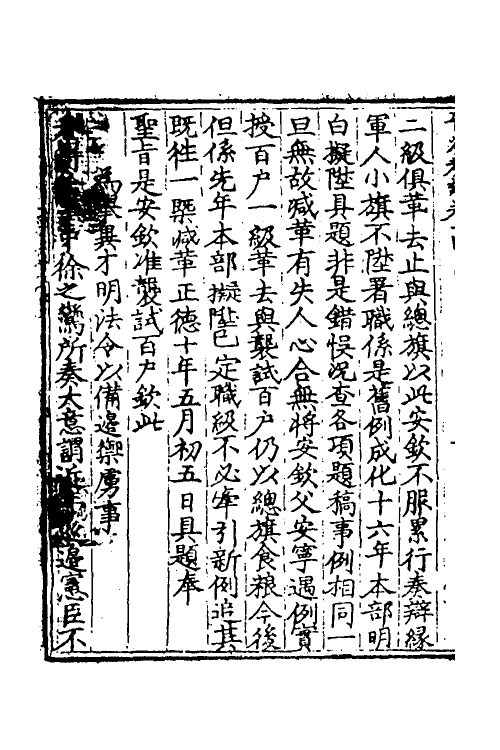 二級俱革去止與總旗以此安欽不服累行奏辯緣
軍人小旗不陞署職係是舊例成化十六年本部明
白擬陞具題非是錯悞况查各項題稿事例相同一
旦無故減革有失人心合無將安欽父安寧遇例實
授百户一級革去與襲試百户仍以總旗食粮今後
但係先年本部擬陞已定職級不必牽引新例追其
既徃一槩減革正德十年五月初五日具題奉
聖旨是安欽准襲試百户欽此
為舉異才明法令以備邊禦虜事
徐之鸞所奏大意謂近邊憲臣不